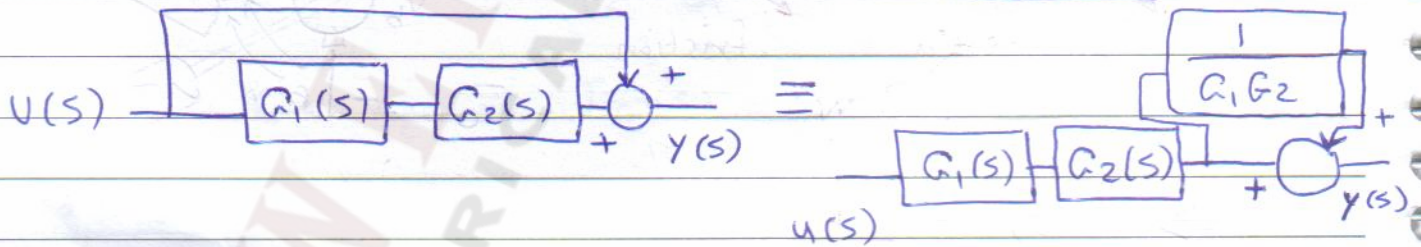 U(S) G1(s) G2(s) + + y(s) ≡ 1 / G1G2
G1(s) G2(s) + + y(s)
u(s)